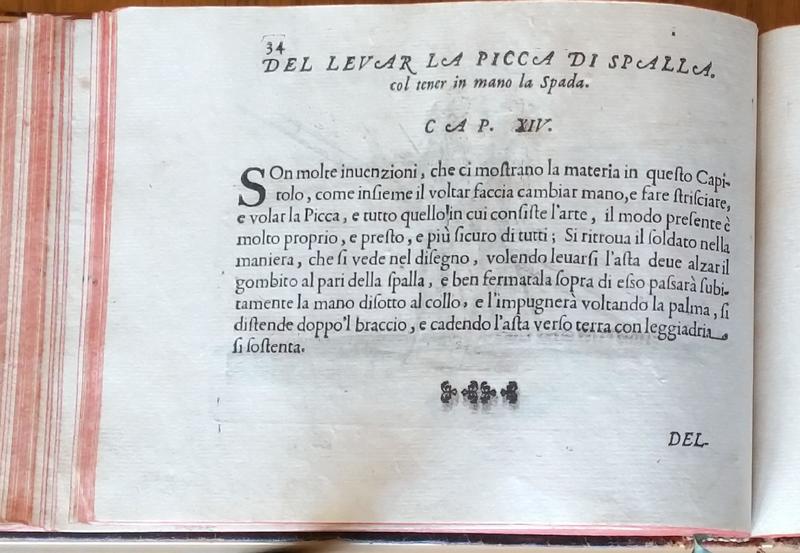 34
DEL LEVAR LA PICCA DI SPALLA.
col tener in mano la Spada.
CAP. XIV.
SOn molte inuenzioni, che ci moſtrano la materia in queſto Capi-
tolo, come inſieme il voltar faccia cambiar mano, e fare ſtriſciare,
e volar la Picca, e tutto quello in cui conſiſte l'arte, il modo preſente è
molto proprio, e preſto, e più ſicuro di tutti; Si ritroua il ſoldato nella
maniera, che ſi vede nel diſegno, volendo leuarſi l'aſta deue alzar il
gombito al pari della ſpalla, e ben fermatala ſopra di eſso paſsarà ſubi-
tamente la mano diſotto al collo, e l'impugnerà voltando la palma, ſi
diſtende doppo'l braccio, e cadendo l'aſta verſo terra con leggiadria
ſi ſoſtenta.
DEL-